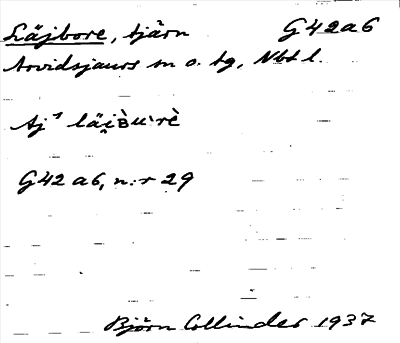 Läjbore, tjärn G42a6
Arvidsjaurs sn o. tg, Nbt l.
Aj¹ läi̯ʙ̀u·rè
G42 a6, n:r 29
Björn Collinder 1937